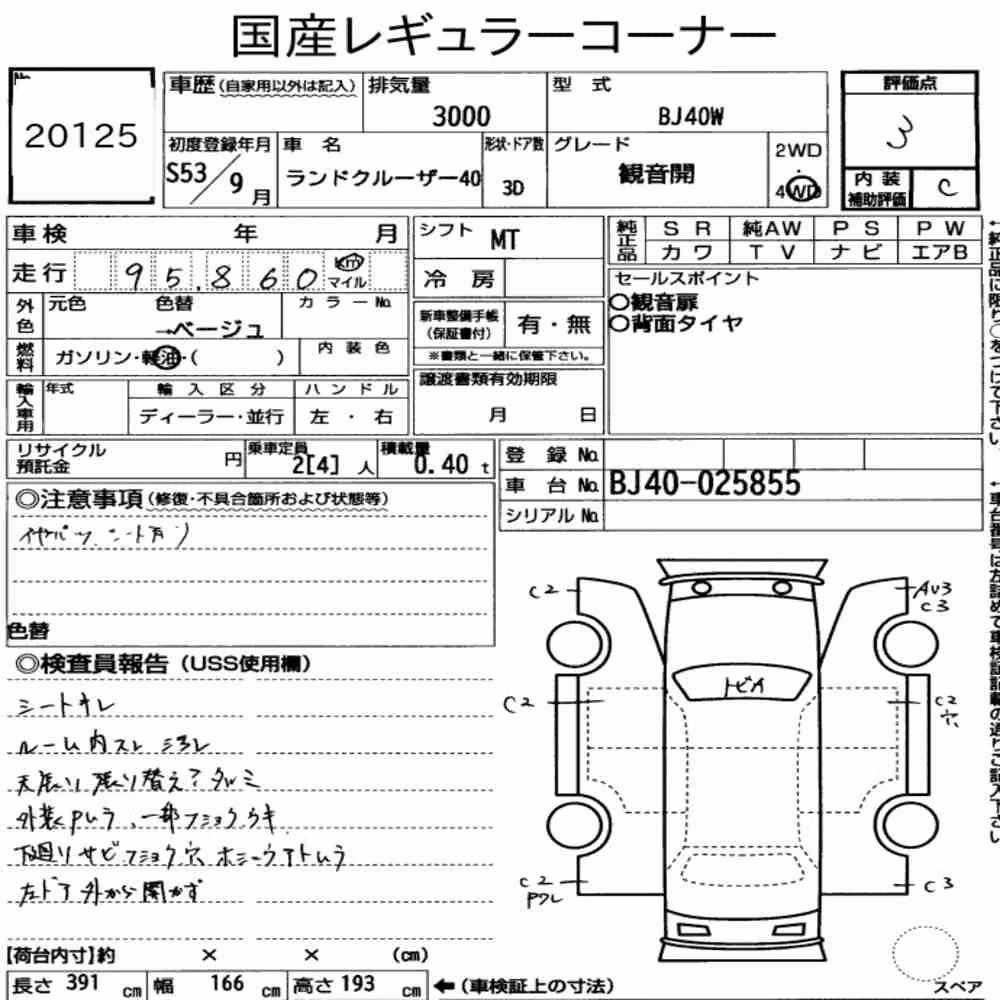 国産レギュラーコーナー
20125
車歴(自家用以外は記入) 排気量 型式 評価点
3000 BJ40W 3
初度登録年月 車名 形状・ドア数 グレード 2WD
S53/9月 ランドクルーザー40 3D 観音開 4WD
内装補助評価 C
車検 年 月 シフト MT 純正品 SR 純AW PS PW
カワ TV ナビ エアB
走行 95,860 km マイル 冷房
セールスポイント
外色 元色 色替 カラーNo.
→ベージュ
○観音扉
○背面タイヤ
新車整備手帳(保証書付) 有・無
※書類と一緒に保管下さい。
燃料 ガソリン・軽油・( ) 内装色
譲渡書類有効期限
月 日
輸入車用 年式 輸入区分 ハンドル
ディーラー・並行 左・右
リサイクル預託金 円 乗車定員 2[4]人 積載量 0.40t
登録No.
車台No. BJ40-025855
シリアルNo.
◎注意事項(修復・不具合箇所および状態等)
色替
◎検査員報告(USS使用欄)
シートキレ
ルーム内スレ ヨゴレ
天張り 張り替え?タルミ
外装Pムラ、一部フショクウキ
下廻りサビフショク穴
左ドア外から開かず
C2
AU3
C3
トビA
C2
C2
穴
C2
C3
スペア
【荷台内寸】約 × × (cm)
長さ 391cm 幅 166cm 高さ 193cm ←(車検証上の寸法)
←純正品に限り○をつけて下さい。